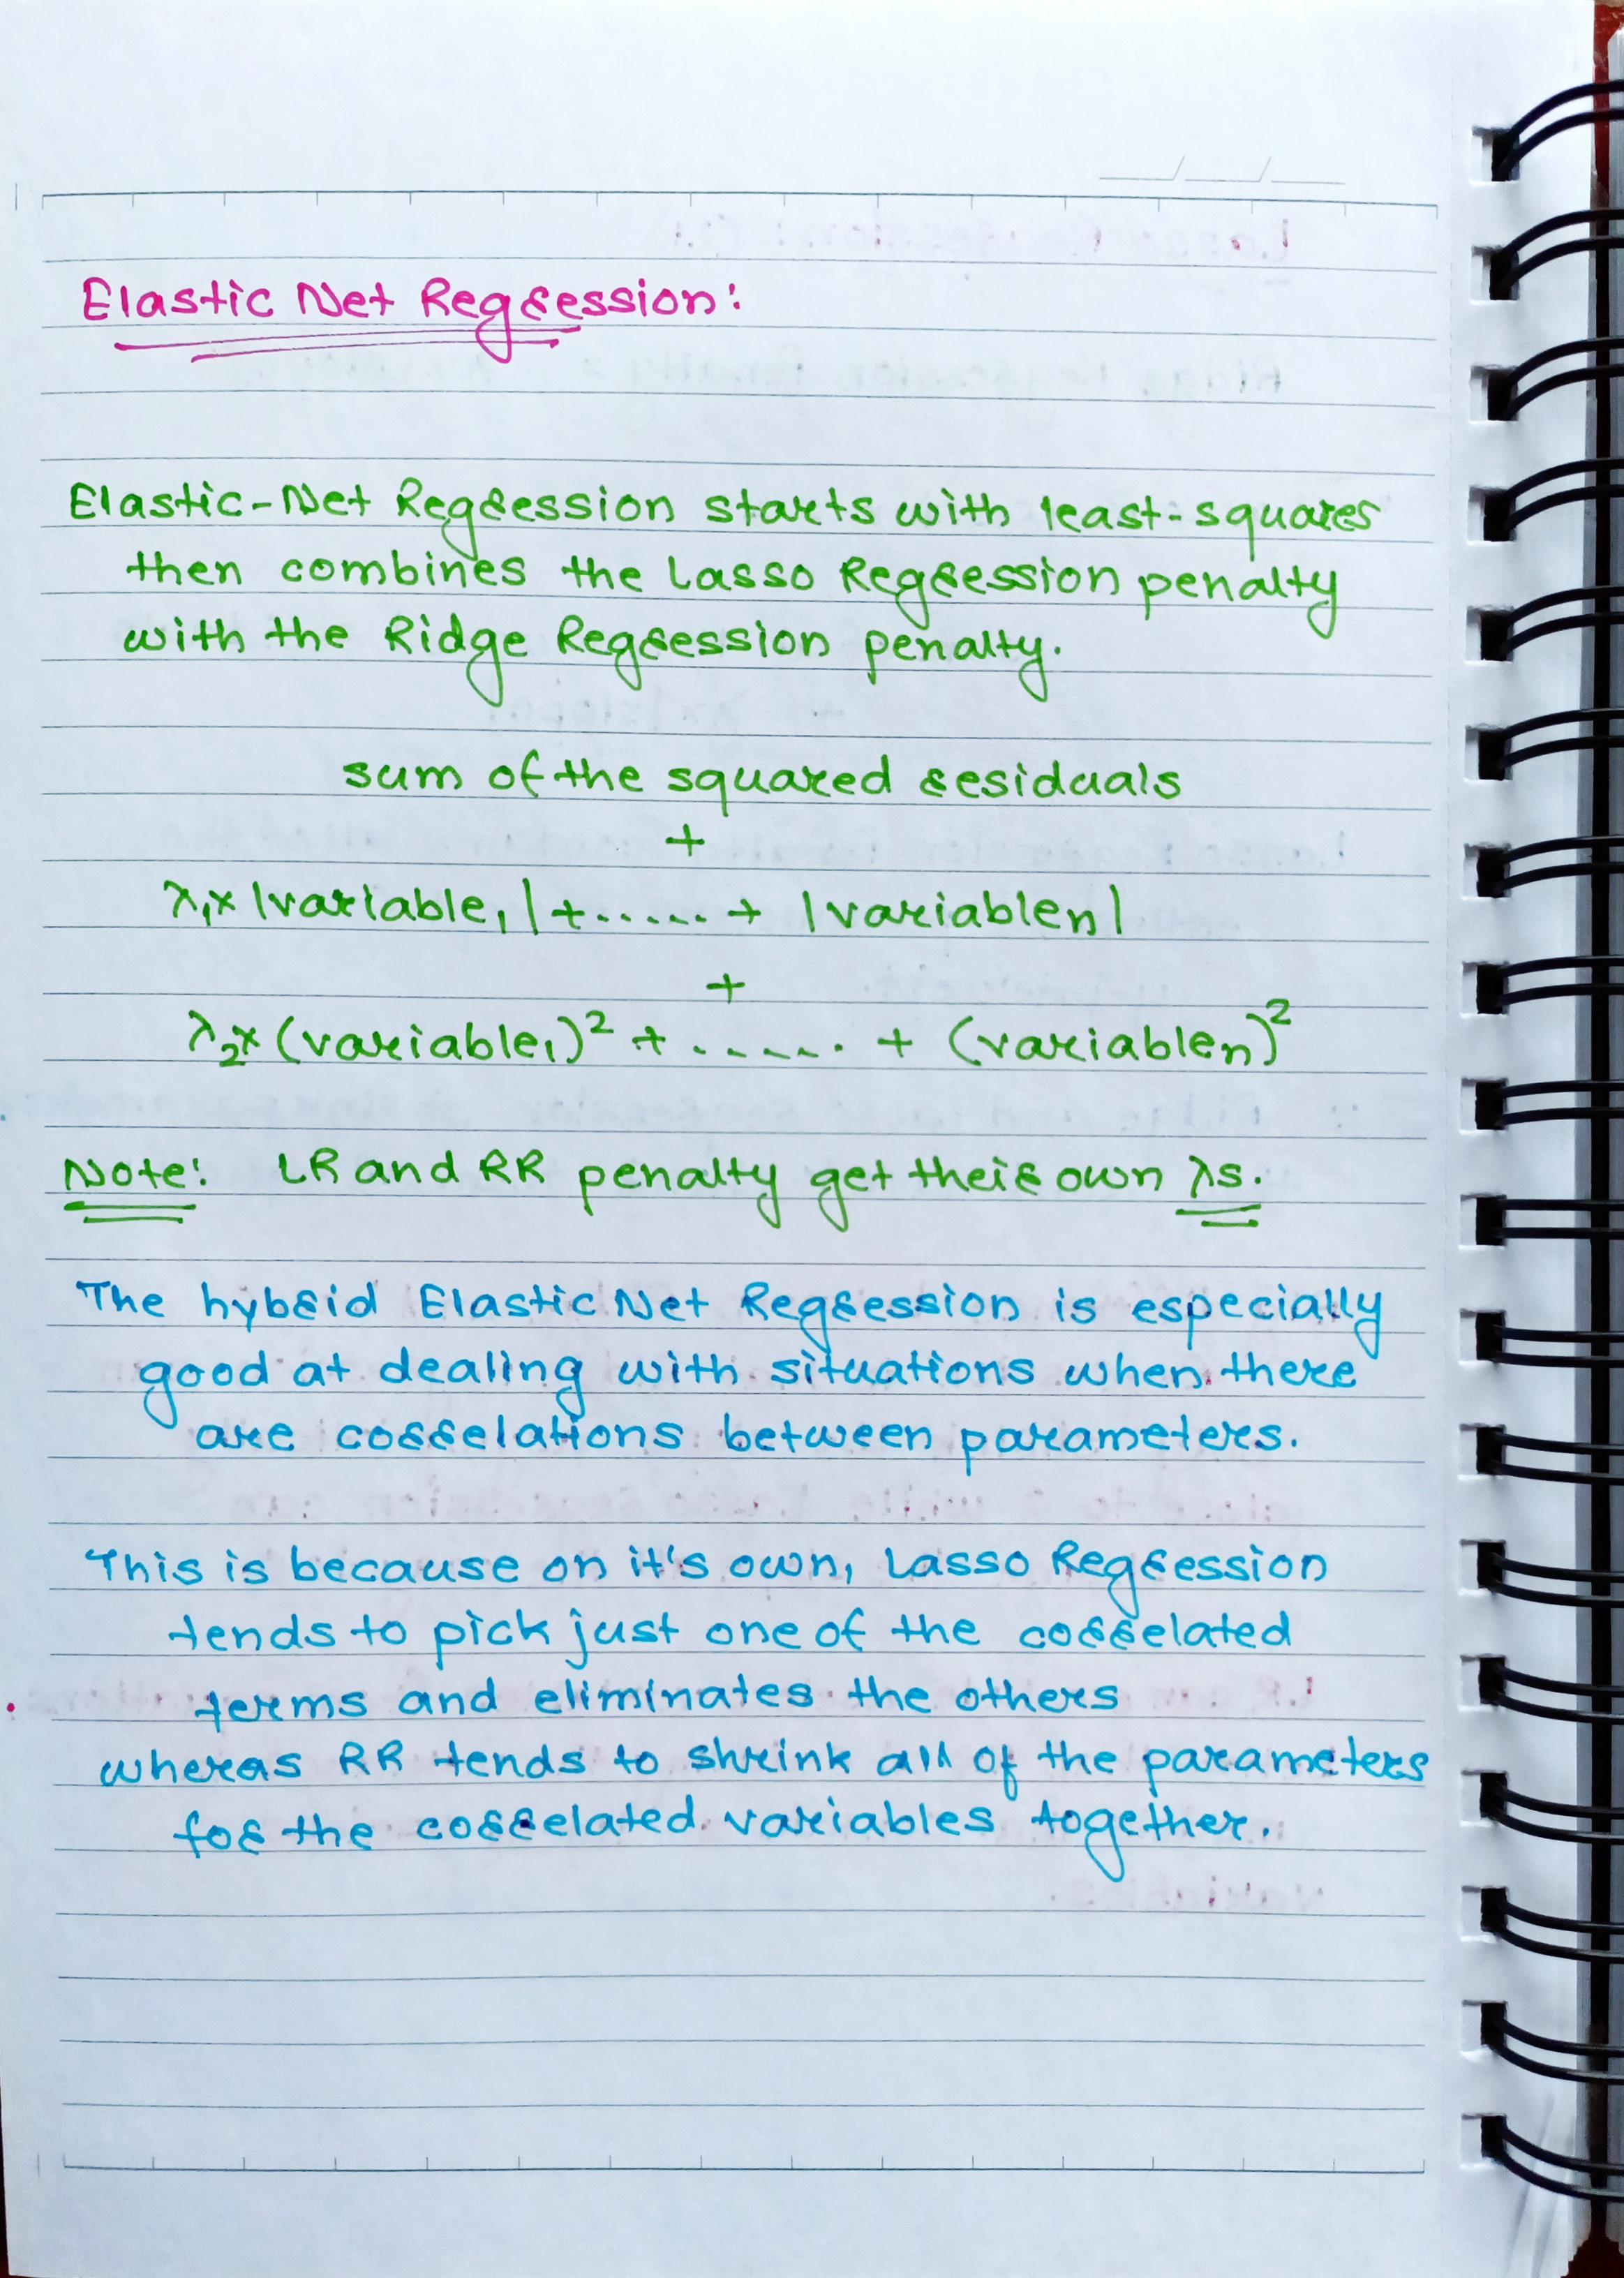 Elastic Net Regression:
Elastic-Net Regression starts with least-squares
then combines the Lasso Regression penalty
with the Ridge Regression penalty.
sum of the squared residuals
+
λ₁× |variable₁| + ..... + |variableₙ|
+
λ₂× (variable₁)² + ...... + (variableₙ)²
Note: LR and RR penalty get their own λs.
The hybrid Elastic Net Regression is especially
good at dealing with situations when there
are correlations between parameters.
This is because on it's own, Lasso Regression
tends to pick just one of the correlated
terms and eliminates the others
whereas RR tends to shrink all of the parameters
for the correlated variables together.